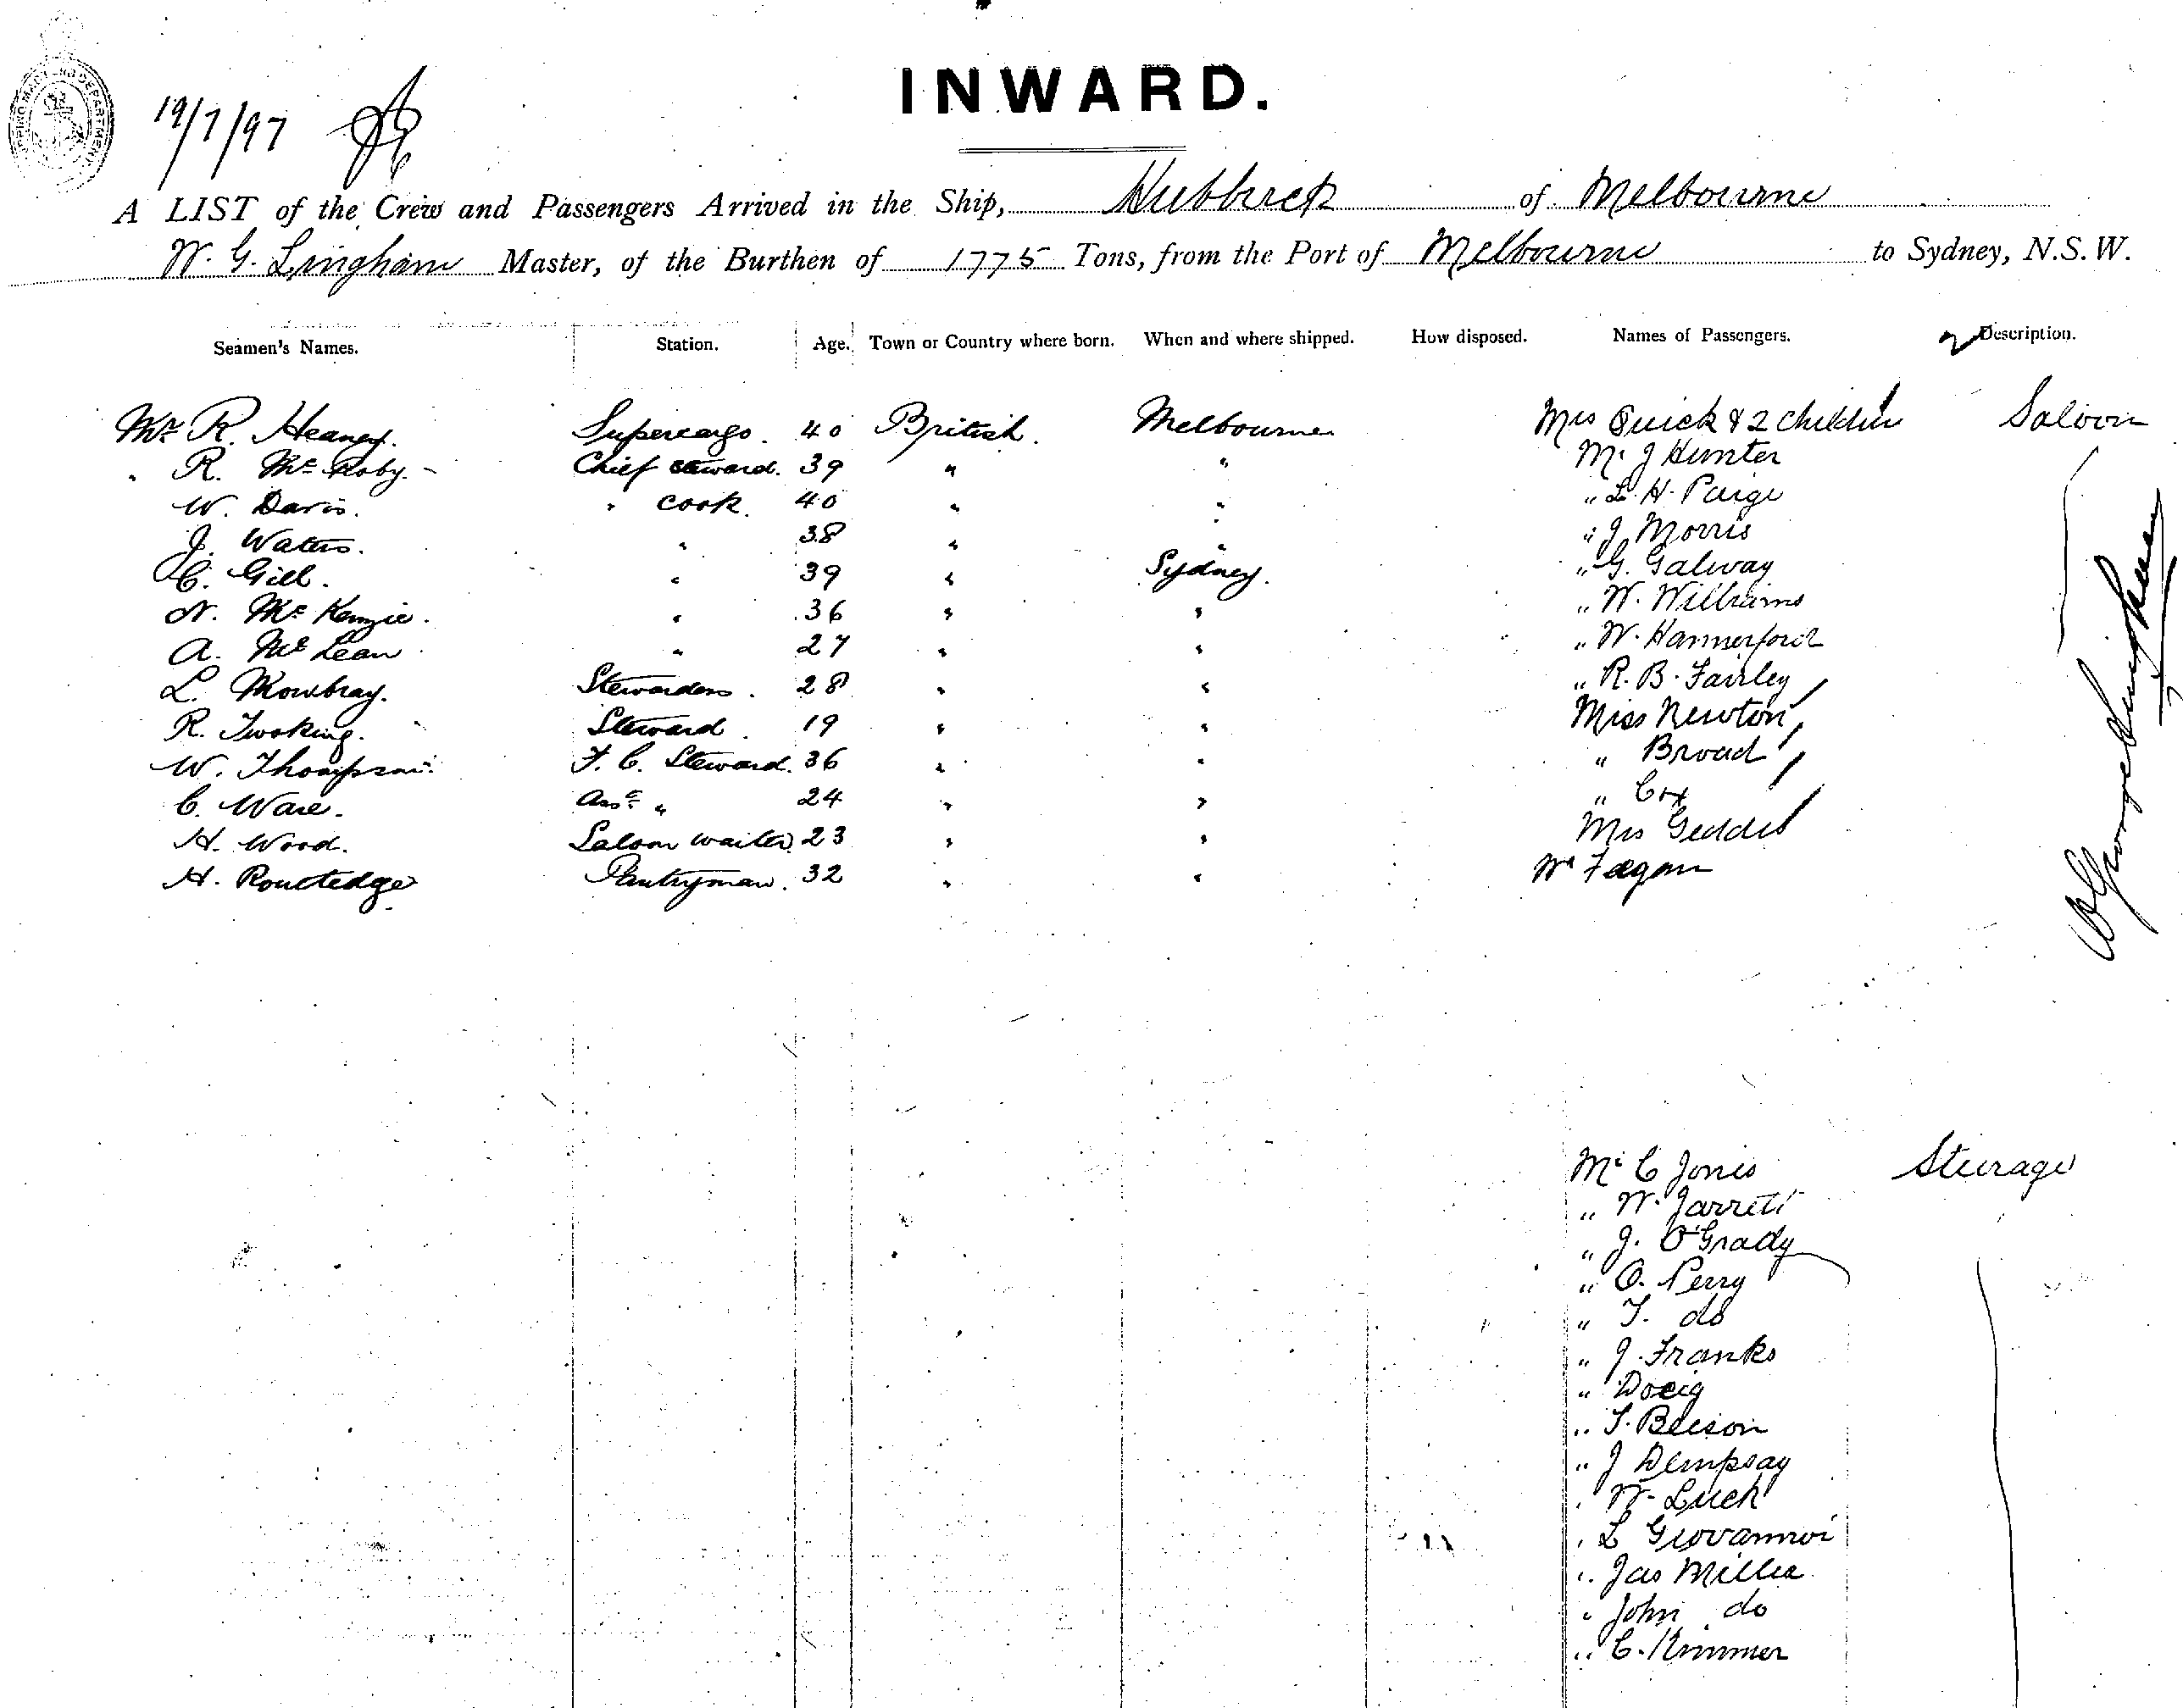 SHIPPING MASTER'S DEPARTMENT
19/7/97
INWARD.
A LIST of the Crew and Passengers Arrived in the Ship, Hubbuck of Melbourne
W. G. Lingham Master, of the Burthen of 1775 Tons, from the Port of Melbourne to Sydney, N.S.W.
Seamen's Names. Station. Age. Town or Country where born. When and where shipped. How disposed. Names of Passengers. Description.
Mr R. Heaney. Supercargo. 40 British. Melbourne Mrs Quick & 2 children Saloon
" R. Mc Roby. Chief steward. 39 " " Mr J Hunter
W. Davis. " cook. 40 " " " L. H. Paige
J. Waters. " 38 " " " J Morris
C. Gill. " 39 " Sydney. " G. Galway
N. Mc Kenzie. " 36 " " " W. Williams
A. Mc Lean " 27 " " " W. Hannerford
L. Mowbray. Stewardess. 28 " " " R. B. Fairley
R. Twoking. Steward. 19 " " Miss Newton
W. Thompson. F. C. Steward. 36 " " " Broad
C. Ware. Asst " 24 " " " Cox
H. Wood. Saloon waiter 23 " " Mrs Geddes
H. Routledge Pantryman. 32 " " Mr Fagan
W George Lingham
Mr C Jones Steerage
" W. Jarrett
" J. O'Grady
" O. Perry
" T. do
" J. Franks
" Doeig
" T. Beeson
" J Dempsay
" W. Luck
" L Giovannoi
" Jas Miller
" John do
" C. Kimmer